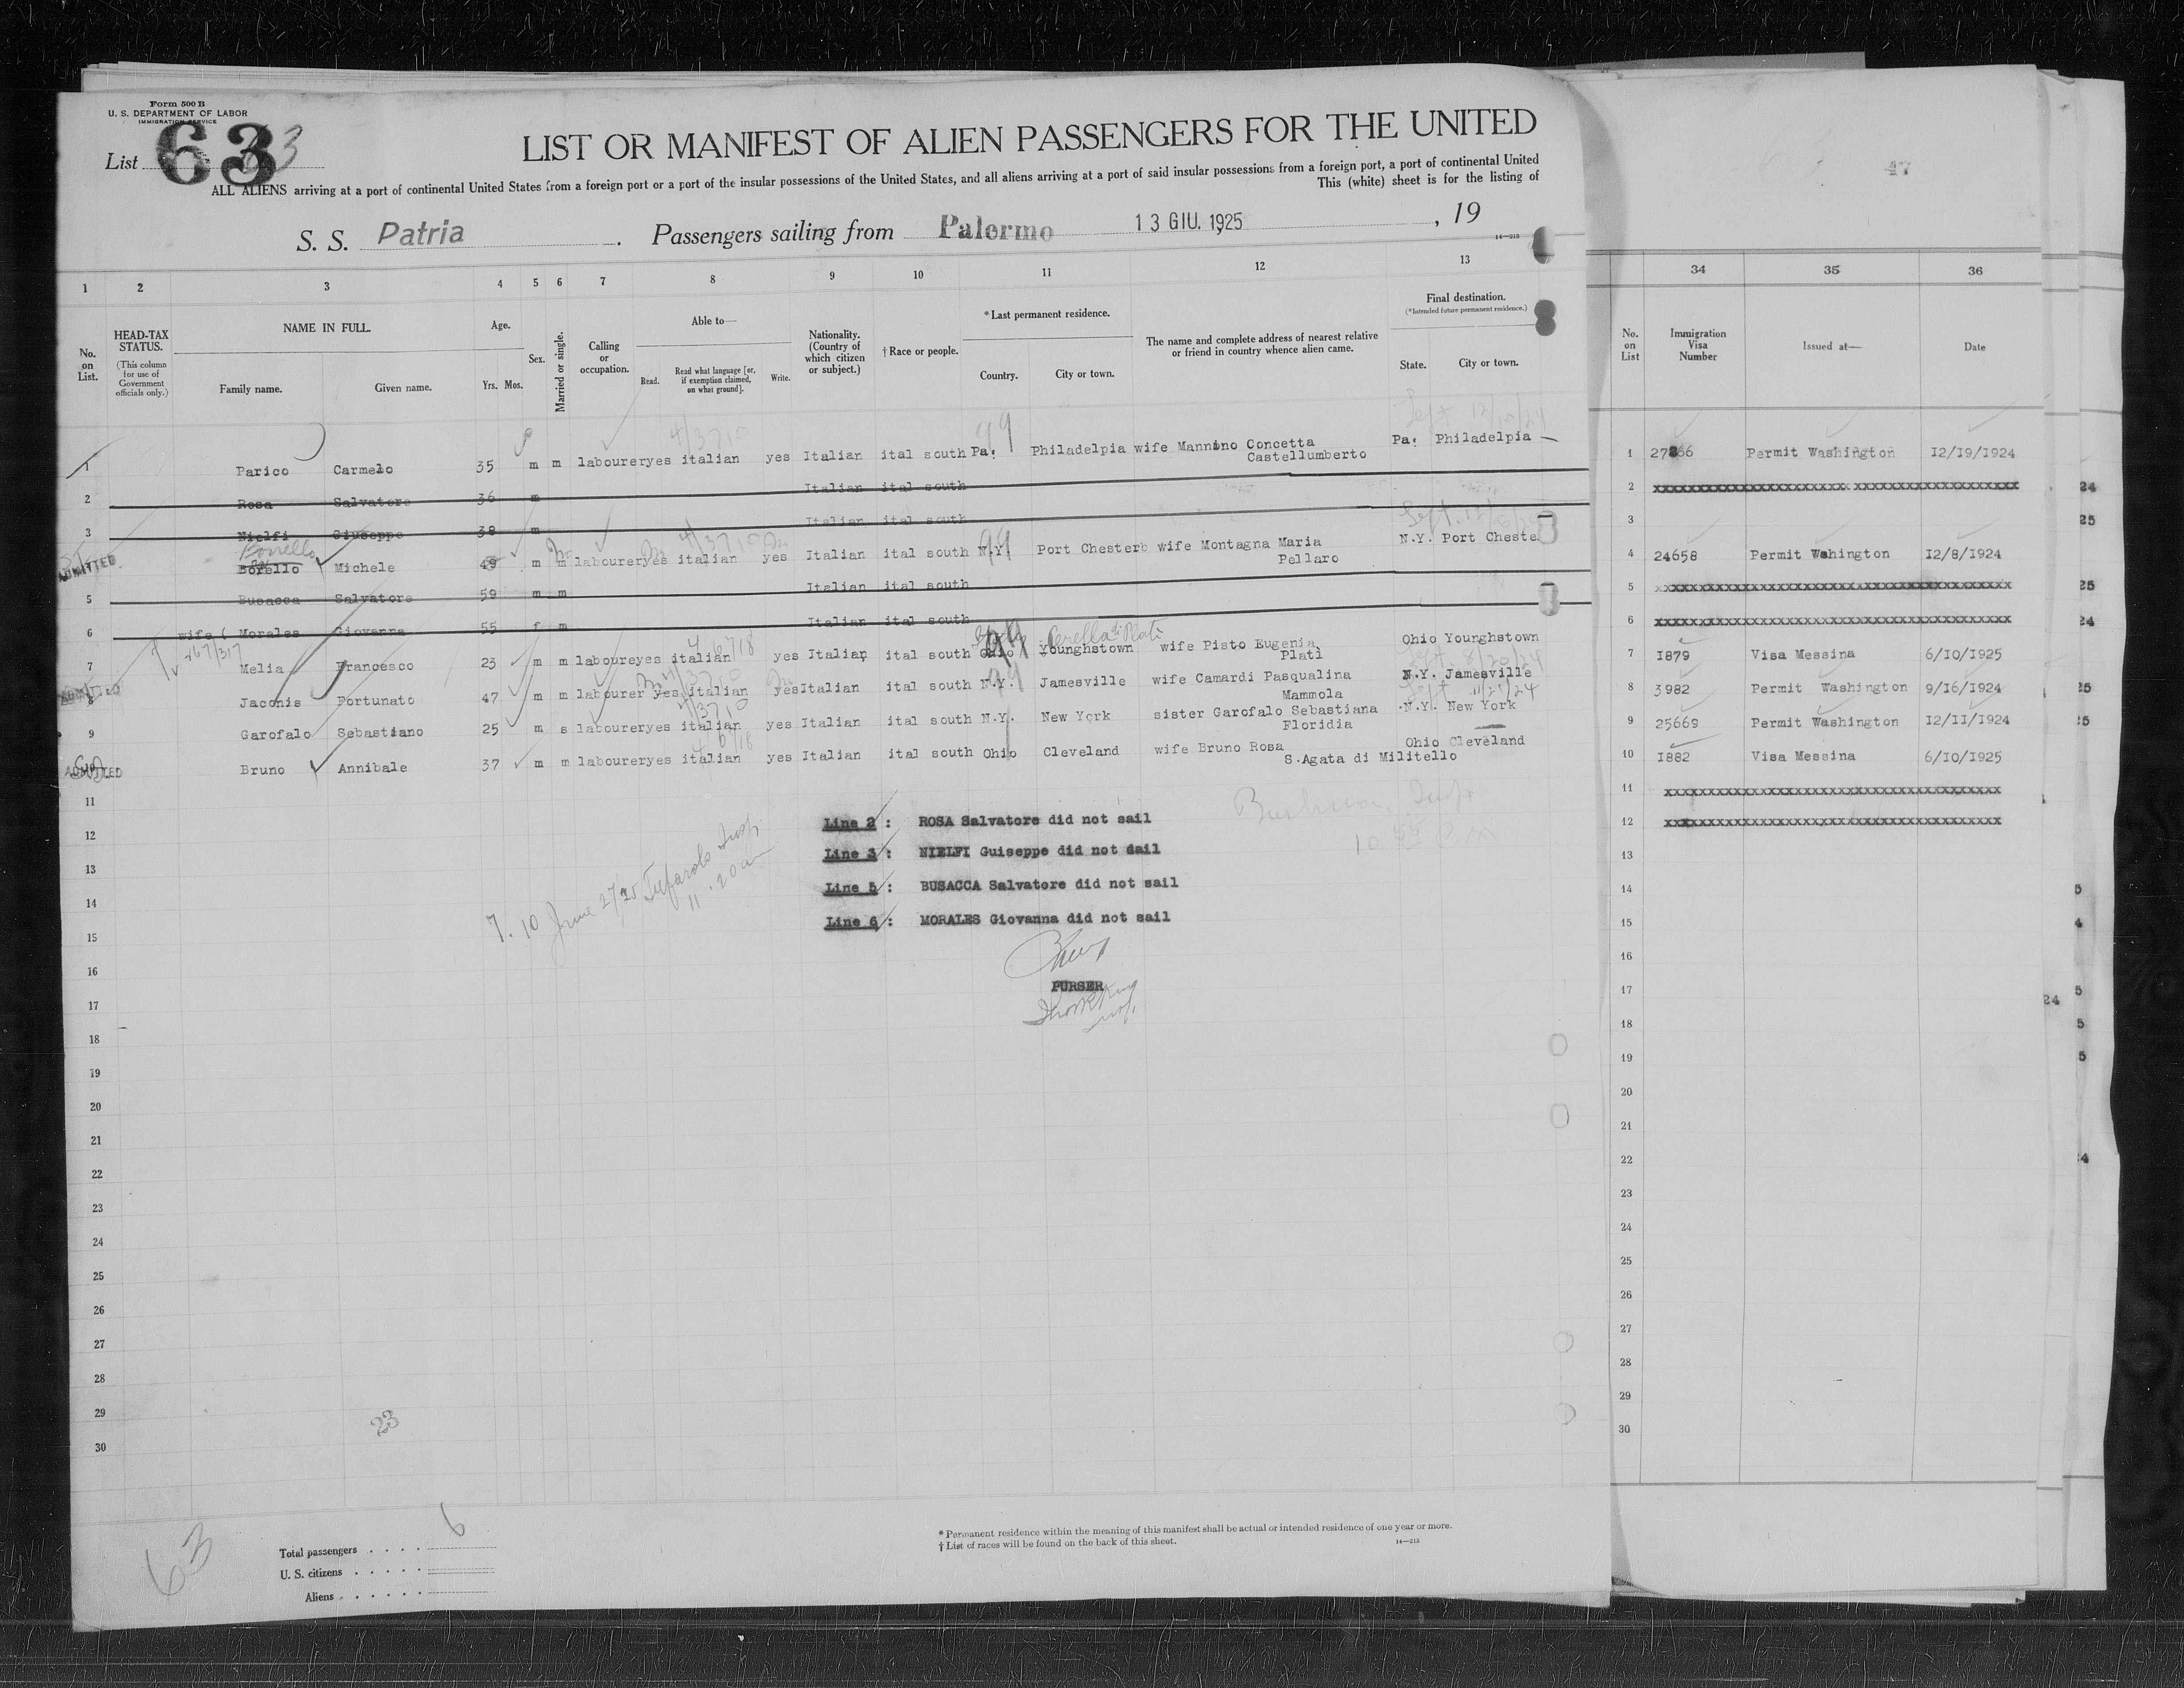 Form 500 B
U. S. DEPARTMENT OF LABOR
IMMIGRATION SERVICE
List 63 63
LIST OR MANIFEST OF ALIEN PASSENGERS FOR THE UNITED
ALL ALIENS arriving at a port of continental United States from a foreign port or a port of the insular possessions of the United States, and all aliens arriving at a port of said insular possessions from a foreign port, a port of continental United
This (white) sheet is for the listing of
47
S. S. Patria . Passengers sailing from Palermo 13 GIU. 1925 , 19
14—213
1 2 3 4 5 6 7 8 9 10 11 12 13 34 35 36
No. on List.
HEAD-TAX STATUS.
(This column for use of Government officials only.)
NAME IN FULL.
Family name. Given name.
Age.
Yrs. Mos.
Sex.
Married or single.
Calling or occupation.
Able to—
Read. Read what language [or, if exemption claimed, on what ground]. Write.
Nationality. (Country of which citizen or subject.)
† Race or people.
*Last permanent residence.
Country. City or town.
The name and complete address of nearest relative or friend in country whence alien came.
Final destination.
(*Intended future permanent residence.)
State. City or town.
No. on List
Immigration Visa Number
Issued at—
Date
Sept 12/10/24
99
4/3710
1 Parico Carmelo 35 m m labourer yes italian yes Italian ital south Pa. Philadelpia wife Mannino Concetta Pa. Philadelpia —
Castellumberto
1 27866 Permit Washington 12/19/1924
2 Rosa Salvatore 36 m Italian ital south
2 xxxxxxxxxxxxxxxxxxxxxxxxx xxxxxxxxxxxxxxxxxxxxx
24
3 Nielfi Giuseppe 38 m Italian ital south
3
25
Borrello
4/3710
99
ADMITTED Borello Michele 49 m m labourer yes italian yes Italian ital south N.Y. Port Chester wife Montagna Maria N.Y. Port Cheste
Pellaro
4 24658 Permit Wahington 12/8/1924
5 Busacca Salvatore 59 m m Italian ital south
5 xxxxxxxxxxxxxxxxxxxxxxxxxxxxxxxxxxxxxxxxxxxx
25
6 wife ( Morales Giovanna 55 f m Italian ital south
6 xxxxxxxxxxxxxxxxxxxxxxxxxxxxxxxxxxxxxxxxxxxx
24
7 Melia Francesco 23 m m laboure yes italian yes Italian ital south Ohio Younghstown wife Pisto Eugenia Ohio Younghstown
Plati
7 1879 Visa Messina 6/10/1925
ADMITTED
8 Jaconis Fortunato 47 m m labourer yes italian yes Italian ital south N.Y. Jamesville wife Camardi Pasqualina N.Y. Jamesville
Mammola
8 3982 Permit Washington 9/16/1924
25
9 Garofalo Sebastiano 25 m s labourer yes italian yes Italian ital south N.Y. New York sister Garofalo Sebastiana N.Y. New York
Floridia
9 25669 Permit Washington 12/11/1924
25
ADMITTED Bruno Annibale 37 m m labourer yes italian yes Italian ital south Ohio Cleveland wife Bruno Rosa Ohio Cleveland
S.Agata di Militello
10 1882 Visa Messina 6/10/1925
11
11 xxxxxxxxxxxxxxxxxxxxxxxxxxxxxxxxxxxxxxxxxx
12
12 xxxxxxxxxxxxxxxxxxxxxxxxxxxxxxxxxxxxxxxxxx
Line 2 : ROSA Salvatore did not sail
Line 3 : NIELFI Guiseppe did not dail
Line 5 : BUSACCA Salvatore did not sail
Line 6 : MORALES Giovanna did not sail
7. 10 June 27/25
11:20 am
PURSER
13 13
14 14
15 15
16 16
17 17
18 18
19 19
20 20
21 21
22 22
23 23
24 24
25 25
26 26
27 27
28 28
29 29
30 30
23
63
Total passengers . . . . 6
U. S. citizens . . . . .
Aliens . . . . . .
* Permanent residence within the meaning of this manifest shall be actual or intended residence of one year or more.
† List of races will be found on the back of this sheet.
14—213